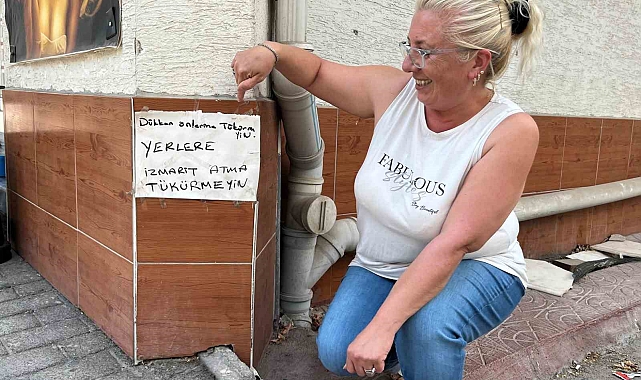 Dükkan önlerine Tükürme
YİN
YERLERE
İZMARİT ATMA
TÜKÜRMEYİN
FABULOUS
styles